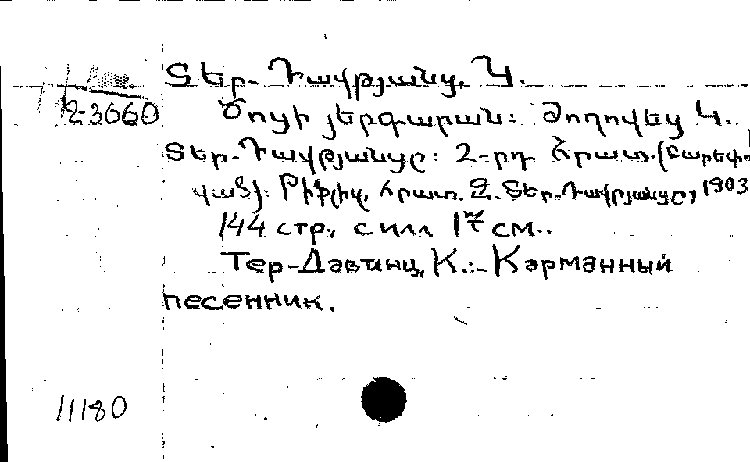 Տեր-Դավթյանց, Կ.
2-3660 Ծոցի յերգարան։ Ժողովեց Կ.
Տեր-Դավթյանցը։ 2-րդ հրատ. (Բարեփո-
ված)։ Թիֆլիզ, հրատ. Զ. Տեր-Դավթյանցը, 1903
144 стр., с илл 17 см..
Тер-Давтянц, К.:- Карманный
песенник.
11180